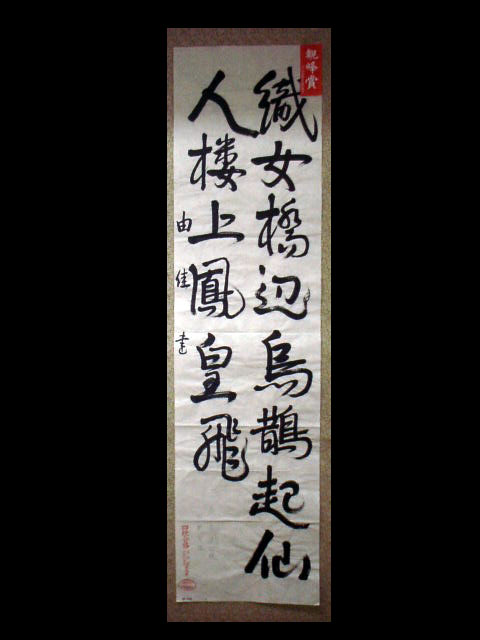 観峰賞
織女橋辺烏鵲起仙
人楼上鳳皇飛
由佳書